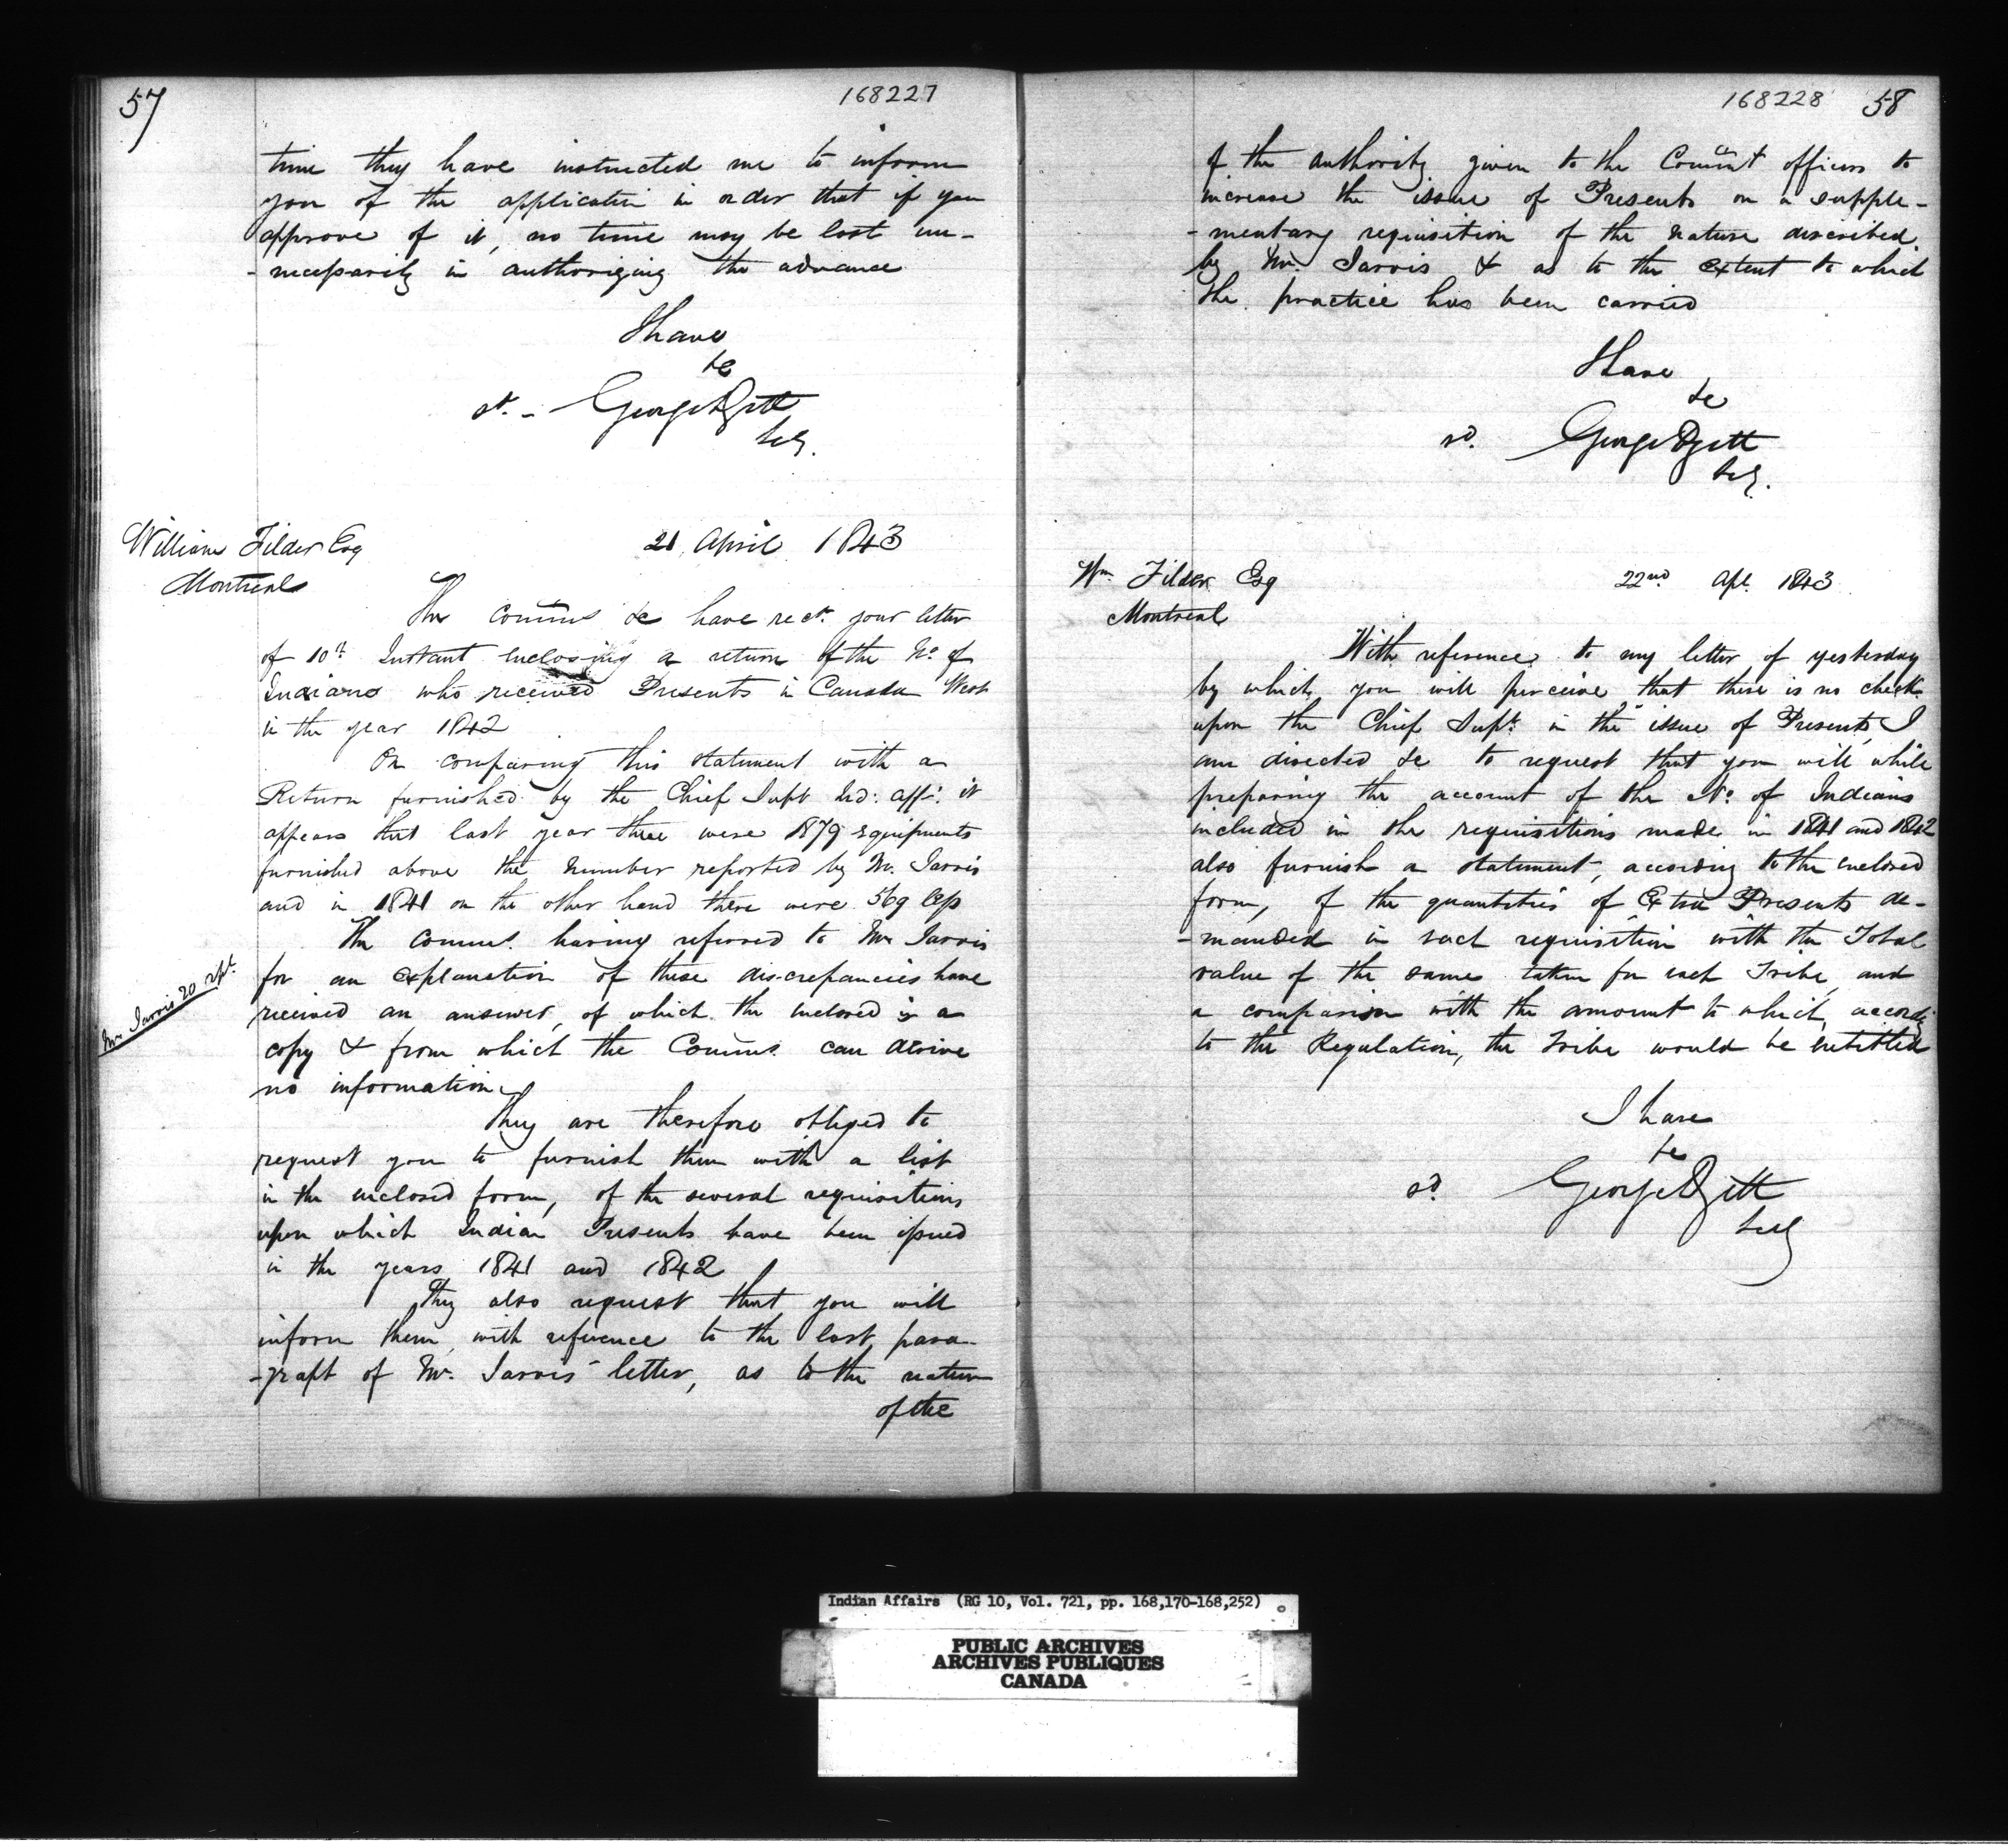 57
168227
time they have instructed me to inform
you of the application in order that if you
approve of it, no time may be lost un-
-necessarily in authorizing the advance
I have
&c
sd. - George
Secy.
William Filder Esq
Montreal
21 April 1843
The Comms &c have recd. your letter
of 10th Instant enclosing a return of the No. of
Indians who received Presents in Canada West
in the year 1842
On comparing this statement with a
Return furnished by the Chief Supt Ind: Affs. it
appears that last year there were 1879 Equipments
furnished above the number reported by Mr. Jarvis
and in 1841 on the other hand there were 569 less
The Comms. having referred to Mr Jarvis
for an explanation of these discrepancies have
received an answer, of which the enclosed is a
copy & from which the Comms. can derive
no information
Mr Jarvis 20
They are therefore obliged to
request you to furnish them with a list
in the enclosed form, of the several requisitions
upon which Indian Presents have been issued
in the years 1841 and 1842
They also request that you will
inform them, with reference to the last para-
-graph of Mr. Jarvis' letter, as to the nature
of the
168228
58
of the authority given to the officers to
increase the issue of Presents on a supple-
-mentary requisition of the nature described
by Mr. Jarvis & as to the extent to which
the practice has been carried
I have
&c
sd. George
Secy.
Wm Filder Esq
Montreal
22nd Apl. 1843
With reference to my letter of yesterday
by which you will perceive that there is no check
upon the Chief Supt. in the issue of Presents, I
am directed &c to request that you will while
preparing the account of the No. of Indians
included in the requisitions made in 1841 and 1842
also furnish a statement, according to the enclosed
form, of the quantities of Extra Presents de-
-manded in each requisition with the Total
value of the same taken for each Tribe, and
a comparison with the amount to which, accordg
to the Regulation, the Tribe would be entitled
I have
&c
sd. George
Secy
Indian Affairs (RG 10, Vol. 721, pp. 168,170-168,252)
PUBLIC ARCHIVES
ARCHIVES PUBLIQUES
CANADA